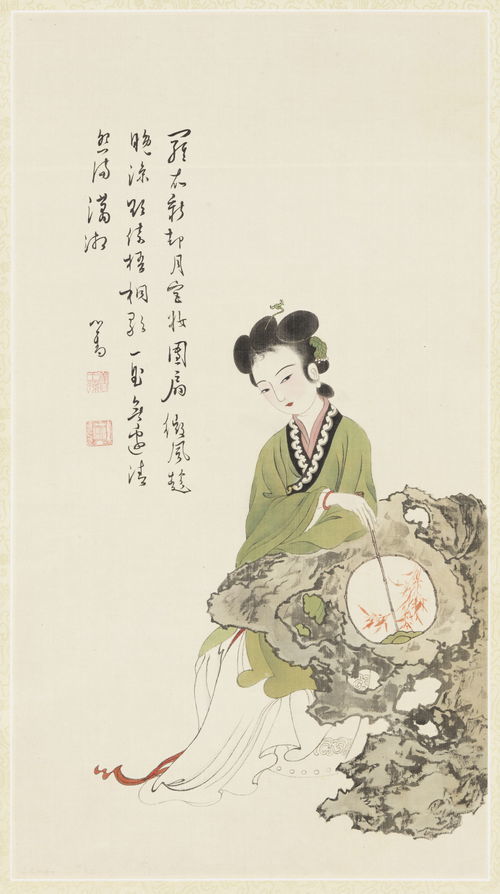 羅衣新却月宮妝團扇微風趁
晚涼倚梧桐一無邊清
怨滿瀟湘
心畬